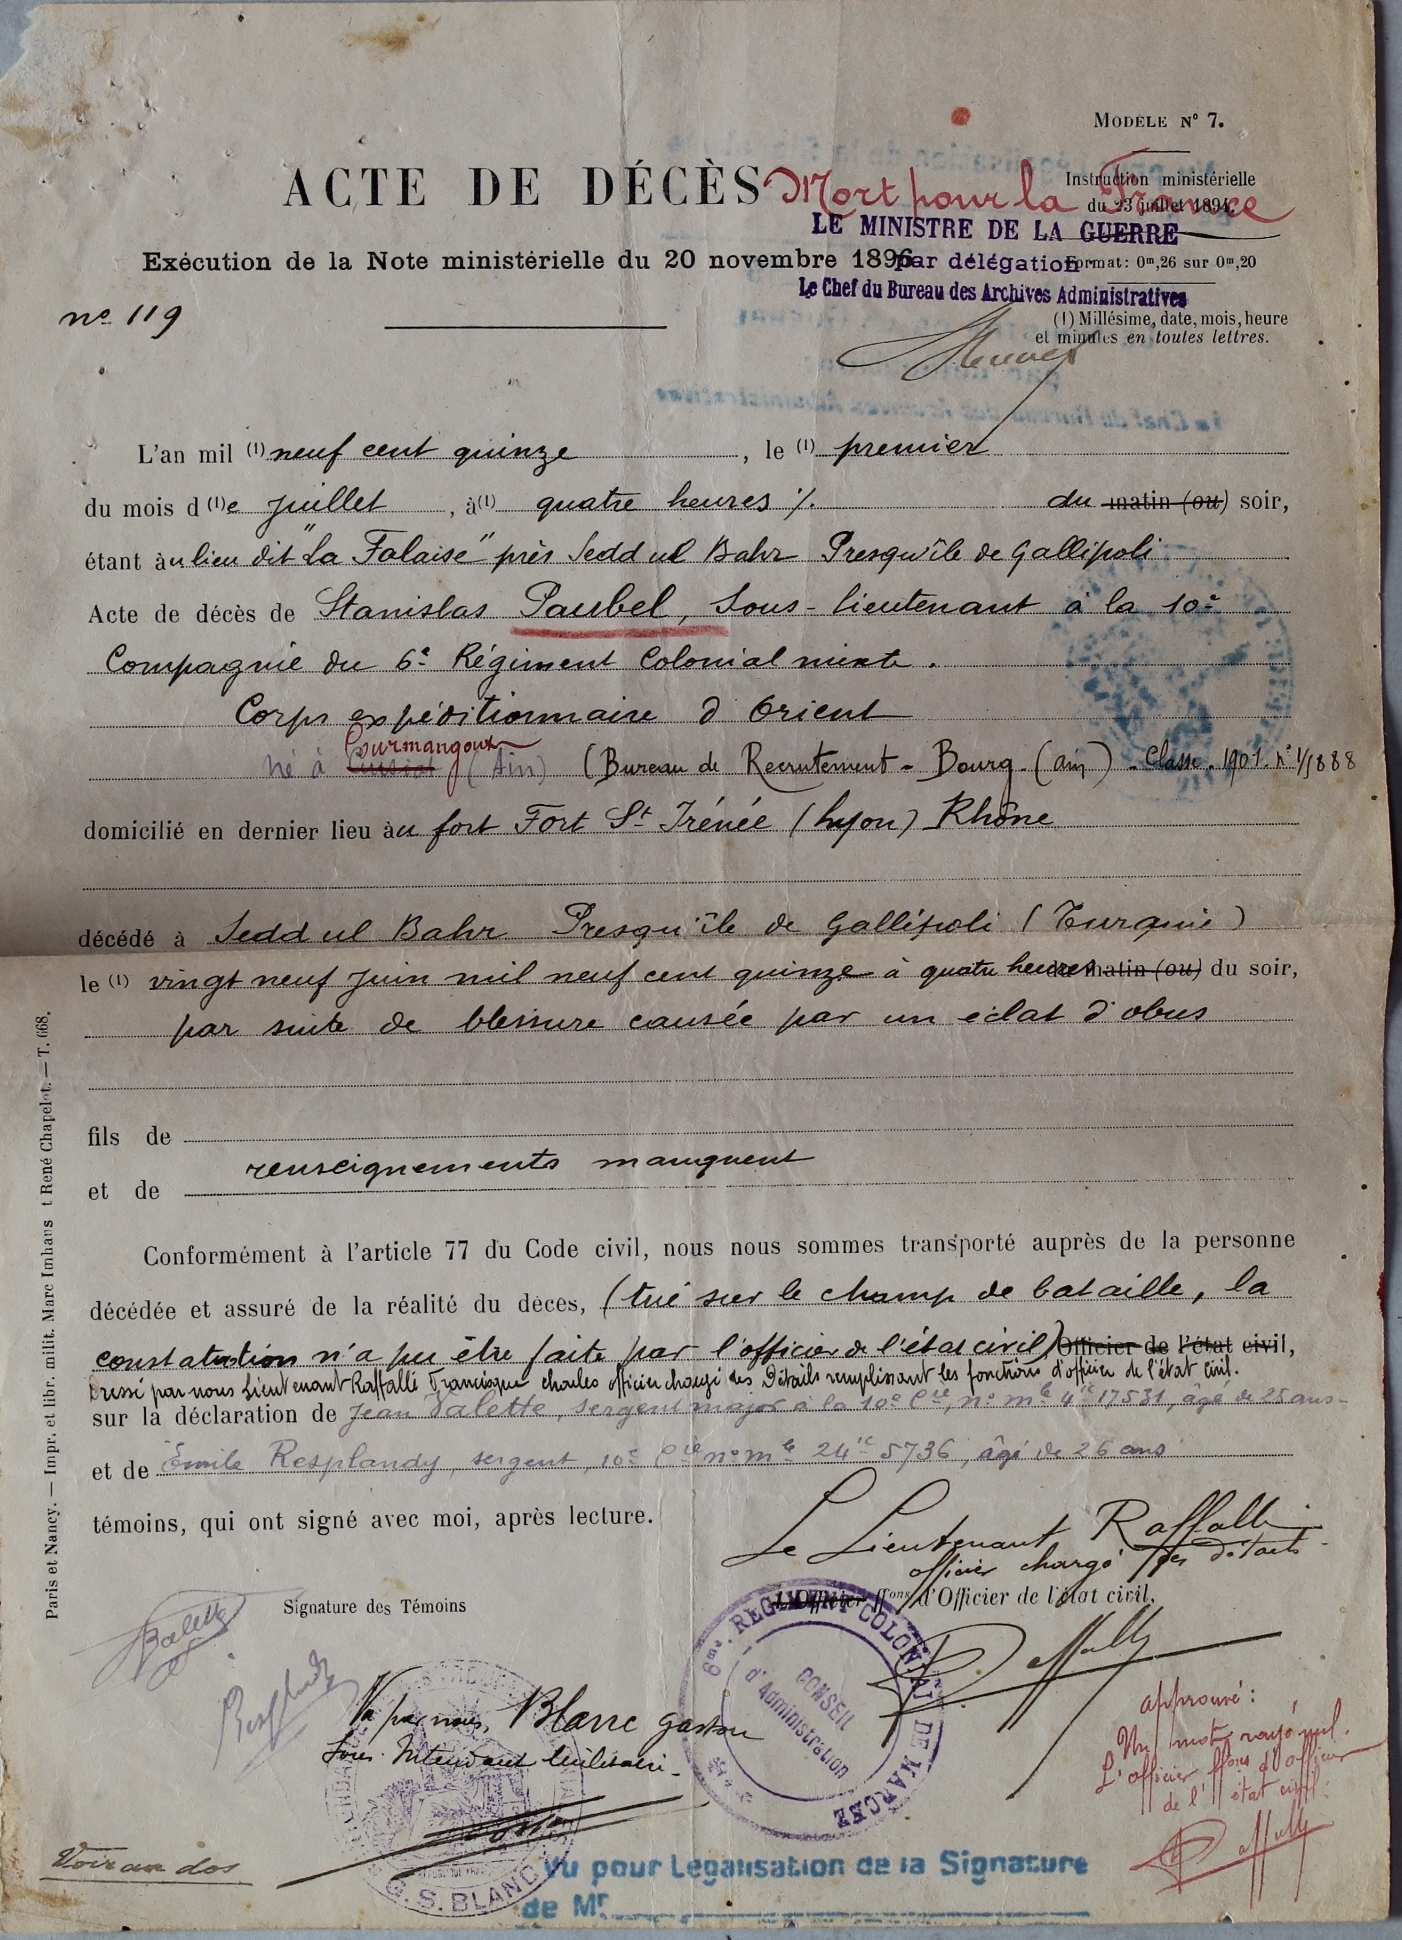 MODÈLE N° 7.
ACTE DE DÉCÈS
Mort pour la France
Instruction ministérielle
du 23 juillet 1894.
LE MINISTRE DE LA GUERRE
Exécution de la Note ministérielle du 20 novembre 1896
par délégation
Format: 0m,26 sur 0m,20
Le Chef du Bureau des Archives Administratives
no 119
(1) Millésime, date, mois, heure
et minutes en toutes lettres.
L'an mil (1) neuf cent quinze, le (1) premier
du mois d (1) e juillet, à (1) quatre heures %. du matin (ou) soir,
étant à u lieu dit "La Falaise" près Sedd ul Bahr Presqu'île de Gallipoli
Acte de décès de Stanislas Paubel, Sous-lieutenant à la 10e
Compagnie du 6e Régiment Colonial mixte.
Corps expéditionnaire d'Orient
Courmangoux
né à (Ain) (Bureau de Recrutement - Bourg - (ain) - Classe - 1901 - n° 1/1888
domicilié en dernier lieu à u fort Fort St Irénée (Lyon) Rhône
décédé à Sedd ul Bahr Presqu'île de Gallipoli (Turquie)
le (1) vingt neuf juin mil neuf cent quinze à quatre heures matin (ou) du soir,
par suite de blessure causée par un éclat d'obus
fils de
renseignements manquent
et de
Conformément à l'article 77 du Code civil, nous nous sommes transporté auprès de la personne
décédée et assuré de la réalité du décès, (tué sur le champ de bataille, la
constatation n'a pu être faite par l'officier de l'état civil) Officier de l'état civil,
Dressé par nous Lieutenant Raffalli Francisque Charles officier chargé des Détails remplissant les fonctions d'officier de l'état civil.
sur la déclaration de Jean Valette, sergent major à la 10e Cie, no mle 4ic 17531, âgé de 25 ans -
et de Emile Resplandy, sergent, 10e Cie no mle 24ic 5736, âgé de 26 ans
témoins, qui ont signé avec moi, après lecture.
Le Lieutenant Raffalli
officier chargé des détails
Signature des Témoins
L'Officier ffons d'Officier de l'état civil.
Valette
Resplandy
Raffalli
6me REGIMENT COLONIAL DE MARCHE
CONSEIL
d'Administration
Vu par nous, Blanc Gaston
Sous-Intendant Militaire -
G. S. BLANC
approuvé:
Un mot rayé nul.
L'officier ffons d'officier
de l'état civil:
Raffalli
Voir au dos
Vu pour Légalisation de la Signature
de Mr
Paris et Nancy. — Impr. et libr. milit. Marc Imhaus t René Chapelot. — T. 668.